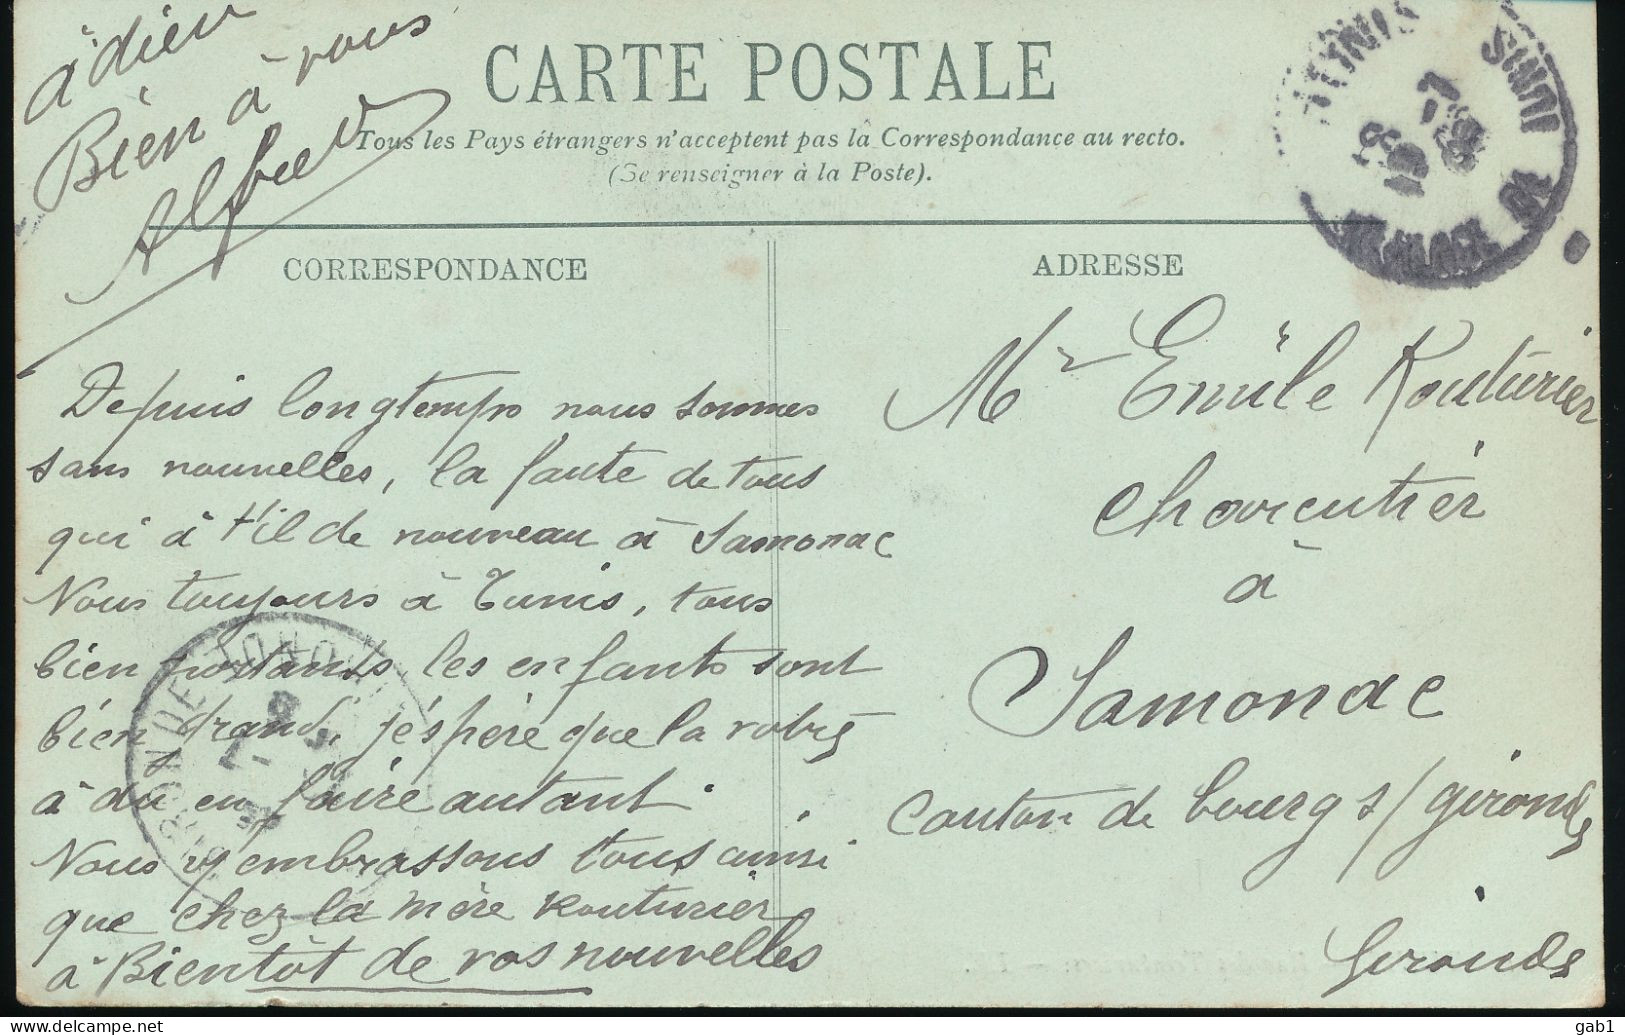 àdieu
Bien à vous
Alfred
CARTE POSTALE
Tous les Pays étrangers n'acceptent pas la Correspondance au recto.
(Se renseigner à la Poste).
CORRESPONDANCE
Depuis longtemps nous sommes
sans nouvelles, la faute de tous
qui à t'il de nouveau à Samonac
Nous toujours à Tunis, tous
bien portants les enfants sont
bien grands, j'éspère que la
à du en faire autant.
Nous v/ embrassons tous ainsi
que chez la mère Kouturier
à Bientôt de vos nouvelles
ADRESSE
Mr Emile Kouturier
charcutier
à
Samonac
Canton de bourg s/ gironde
Gironde
TUNIS
gab1